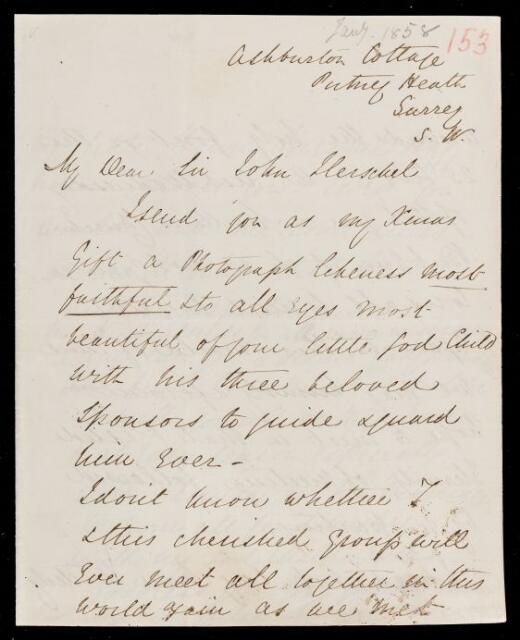 Jany. 1858
153
Ashburton Cottage
Putney Heath
Surrey
S. W.
My Dear Sir John Herschel
I send you as my Xmas
Gift a Photograph likeness most
faithful & to all Eyes most
beautiful of your little God Child
with his three beloved
Sponsors to guide & guard
him Ever -
I don't know whether I
& this cherished group will
Ever meet all together in this
world again as we met